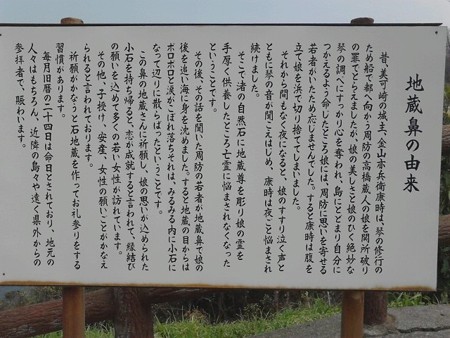 地蔵鼻の由来
昔、美可崎の城主、金山亦兵衛康時は、琴の修行の
ため船で都へ向かう周防の高橋蔵人の娘を関所破り
の罪でとらえておりますが、娘の美しさと娘のひく絶妙な
琴の調べにすっかり心を奪われ、島にとどまり自分に
つかえるよう命じたところ娘には、周防に思いを寄せる
若者がいたため応じませんでした。すると康時は腹を
立て娘を浜で切り捨ててしまいました。
それから間もなく夜になると、娘のすすり泣く声と
ともに琴の音が聞こえはじめ、康時は夜ごと悩まされ
続けました。
そこで渚の自然石に地蔵尊を彫り娘の霊を
手厚く供養したところ亡霊に悩まされなくなった
ということです。
その後、その話を聞いた周防の若者が地蔵鼻で娘の
後を追い海に身を沈めました。すると地蔵の目からは
ポロポロと涙がこぼれ落ちそれは、みるみる内に小石に
なって辺りに散らばったということです。
この鼻の地蔵さんに祈願し、娘の思いが込められた
小石を持ち帰ると、恋が成就すると言われて、縁結び
の願いを込めて多くの若い女性が訪れています。
その他、子授け、安産、女性の願いごとがかなえ
られると言われています。
祈願がかなうと石地蔵を作ってお礼参りをする
習慣があります。
毎月旧暦の二十四日は命日とされており、地元の
人々はもちろん、近隣の島々や遠く県外からの
参拝者で、賑わいます。